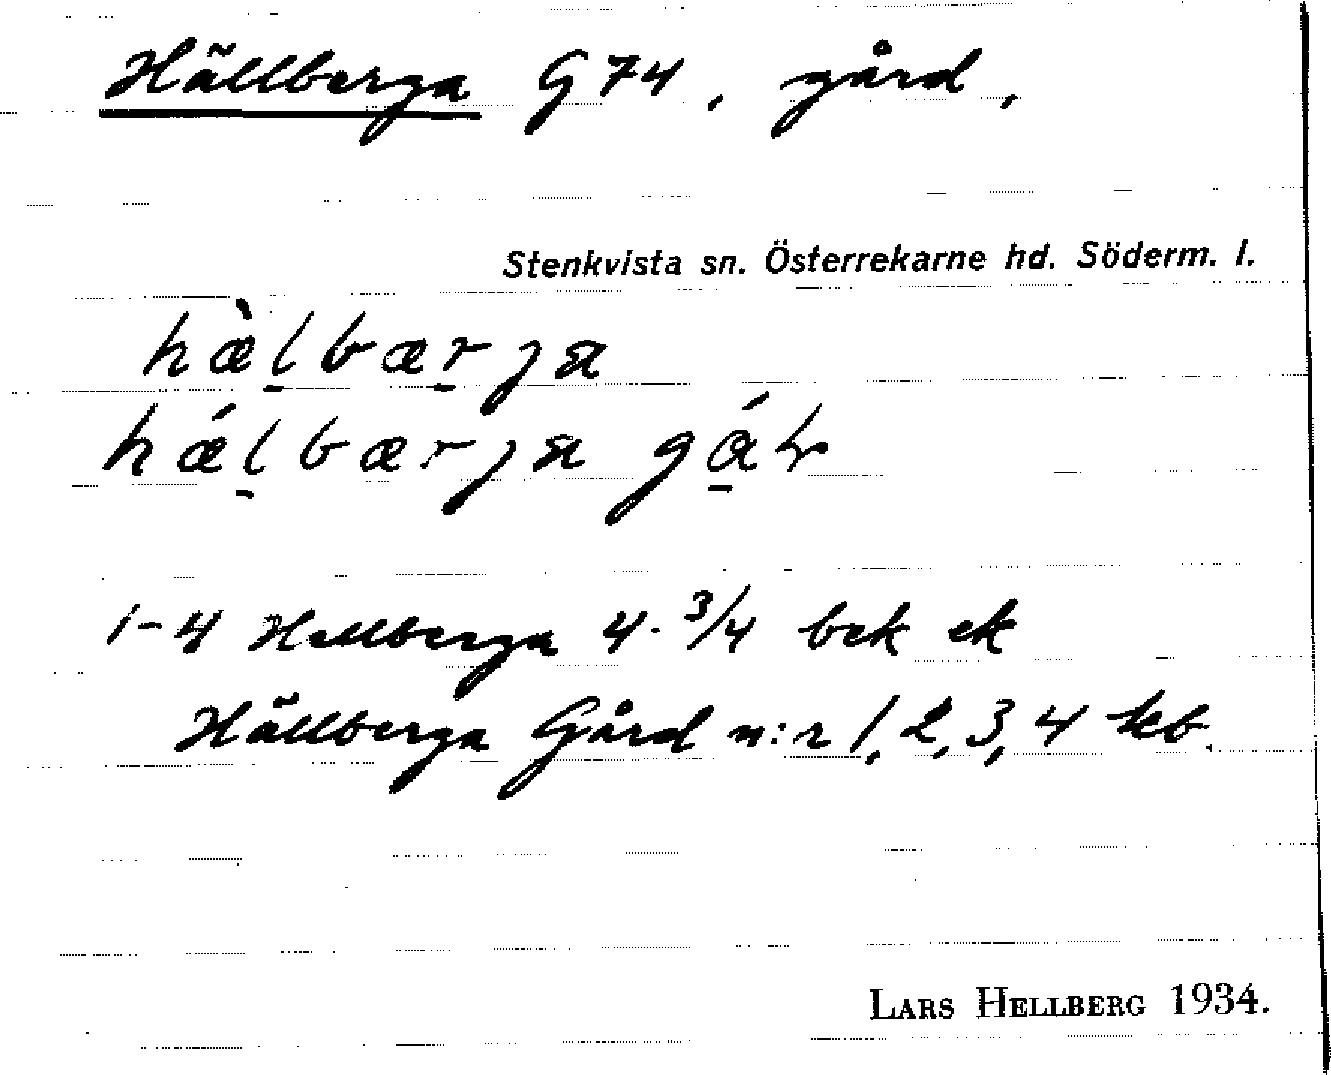 Hällberga G 74, gård,
Stenkvista sn. Österrekarne hd. Söderm. l.
hæ̀l̲bær̲ja
hǽl̲bærja gá̲ḷ
1-4 Hellberga 4. 3/4 bek ek
Hällberga Gård n:r 1, 2, 3, 4 kb.
LARS HELLBERG 1934.